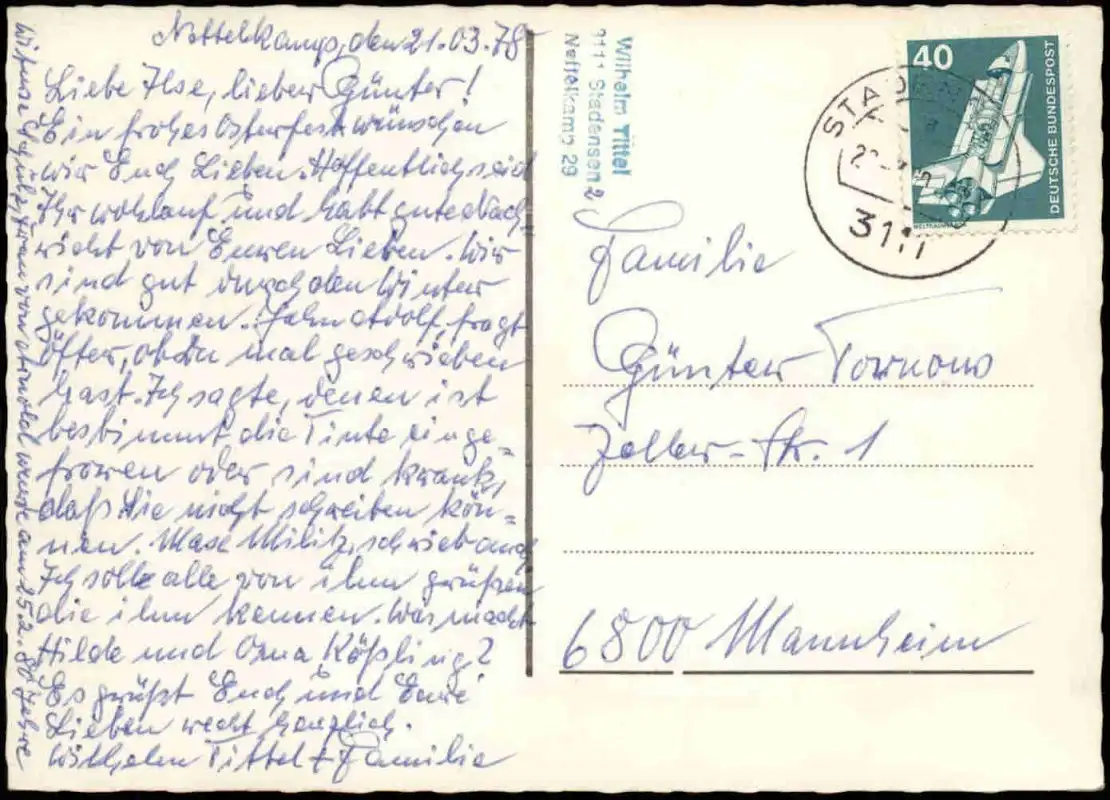 Nettelkamp, den 21.03.78
Liebe Ilse, lieber Günter!
Ein frohes Osterfest wünschen
wir Euch Lieben. Hoffentlich seid
Ihr wohlauf und habt gute Nach=
richt von Euren Lieben. Wir
sind gut durch den Winter
gekommen. Adolf, fragt
öfter, ob Du mal geschrieben
hast. Ich sagte, denen ist
bestimmt die Tinte einge=
froren oder sind krank,
daß sie nicht schreiben kön=
nen. Max Militz, schrieb auch
Ich solle alle von ihm grüßen
die ihn kennen. Was macht
Hilde und Oma Kößling?
Es grüßt Euch und Eure
Lieben recht herzlich.
Wilhelm Tittel + Familie
Frau von Arnold wurde am 25.2. 80 Jahre
Wilhelm Tittel
3111 Stadensen 2
Nettelkamp 29
40
DEUTSCHE BUNDESPOST
3111
Familie
Günter Tornow
Zeller-Str. 1
6800 Mannheim